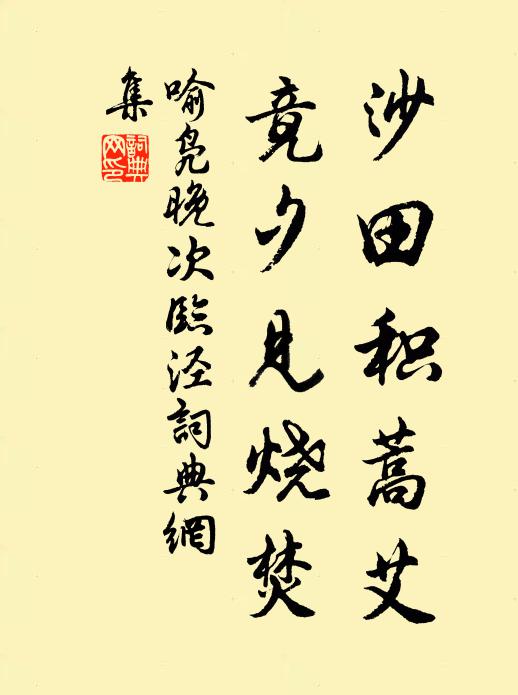 沙田积蒿艾
竟夕见烧焚
喻凫晚次臨泾詞典網
集
詞典
网印